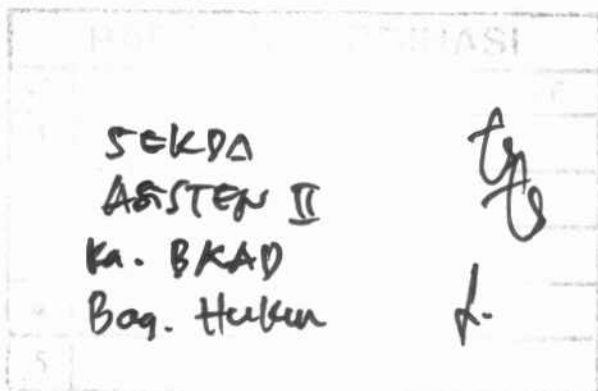 SEKDA
ASISTEN II
Ka. BKAD
Bag. Hukum
5